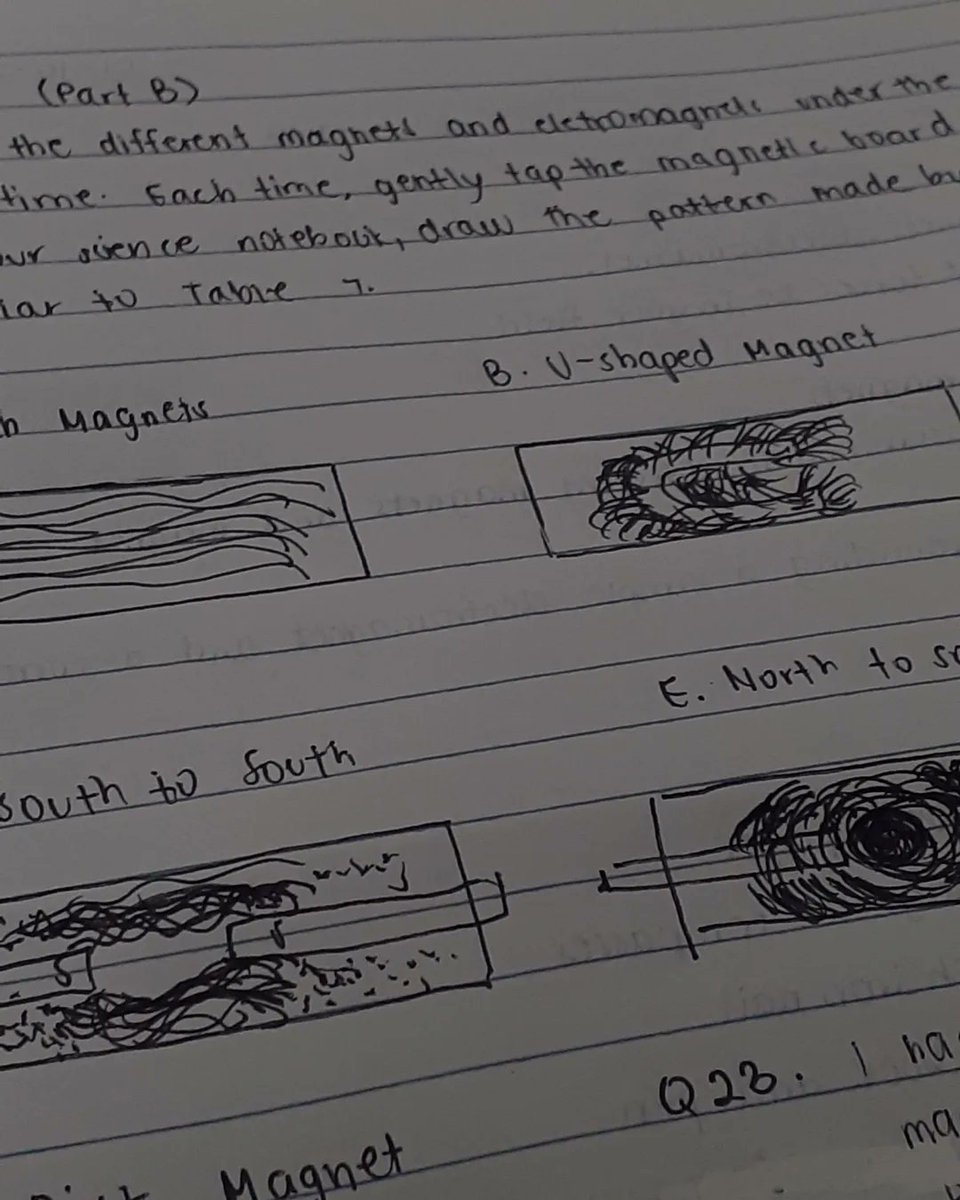 (Part B)
the different magnets and eletromagnets under the
time. Each time, gently tap the magnetic board
ur sience notebook, draw the pattern made by
iar to Table 7.
B. U-shaped Magnet
Magnets
E. North to so
South to South
S
S
Q23. I ha
ma
Magnet